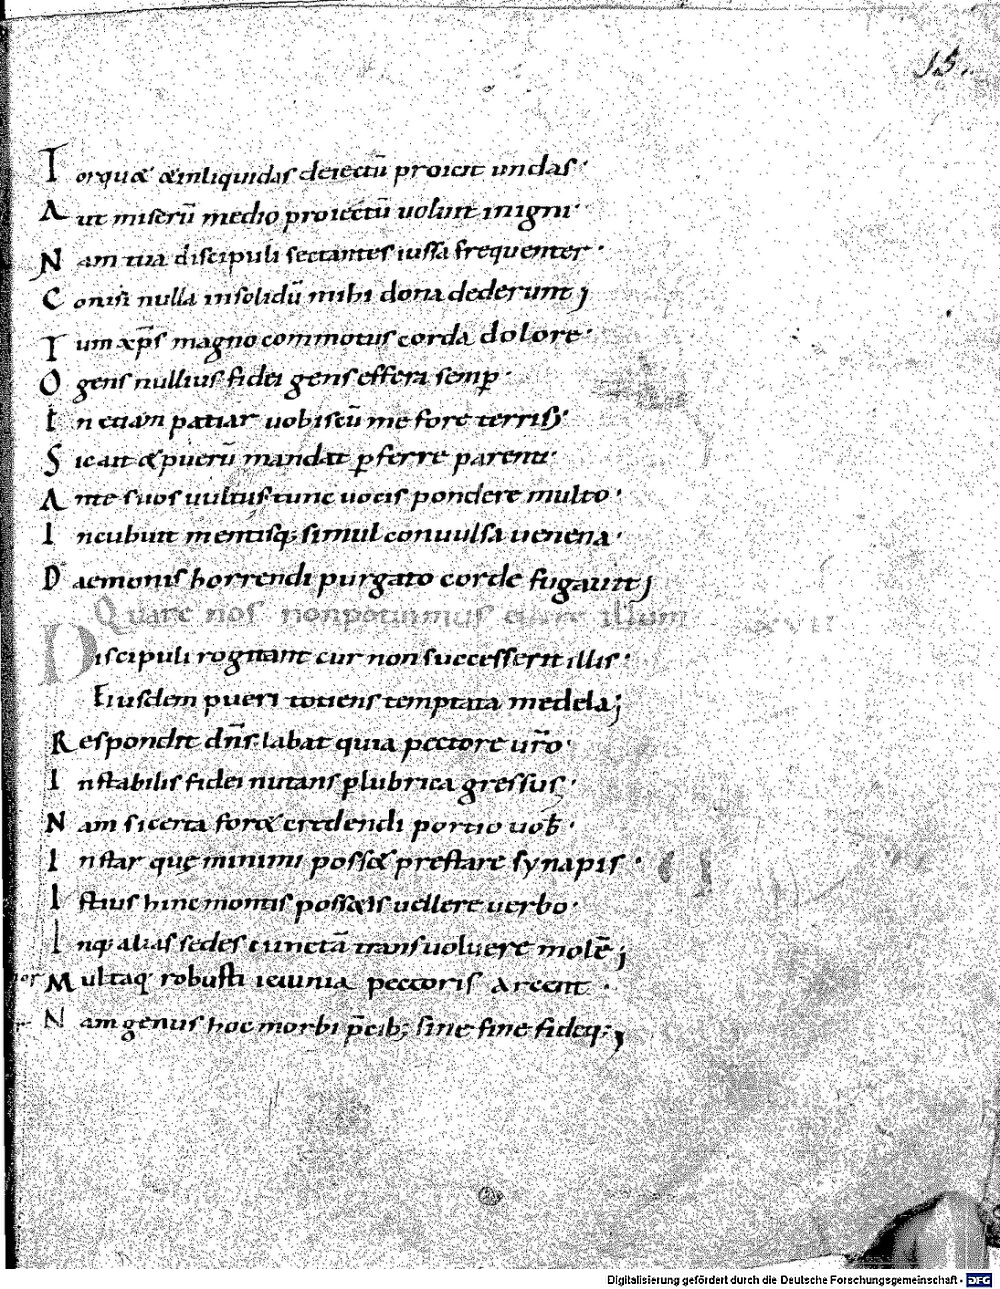 15.
Torqu& &inliquidas deiectū proicit undas·
Aut miserū medio proiectū uoluit inigni·
Nam tua discipuli sectantes iussa frequenter·
Conisi nulla insolidū mihi dona dederunt;
Tum xp̄s magno commotus corda dolore·
O gens nullius fidei gens effera semp̱·
In etiam patiar uobiscū me fore terris·
Sic ait & puerū mandat p̱ferre parenti·
Ante suos uultus tunc uocis pondere multo·
Incubuit mentisq; simul conuulsa uenena·
Daemonis horrendi purgato corde fugauit;
Quare nos nonpotuimus eicere illum
Discipuli rogitant cur non successerit illis·
Eiusdem pueri totiens temptata medela;
Respondit dn̄s labat quia pectore ur̄o·
Instabilis fidei nutans p̱ lubrica gressus·
Nam si certa for& credendi portio uob̄·
Instar quę minimi poss& prestare synapis·
Istius hinc montis poss&is uellere uerbo·
Inq; alias sedes cunctā transuoluere molē;
Multaq; robusti ieiunia pectoris arcent·
Nam genus hoc morbi p̄cib; sine fine fideq;;
Digitalisierung gefördert durch die Deutsche Forschungsgemeinschaft - DFG